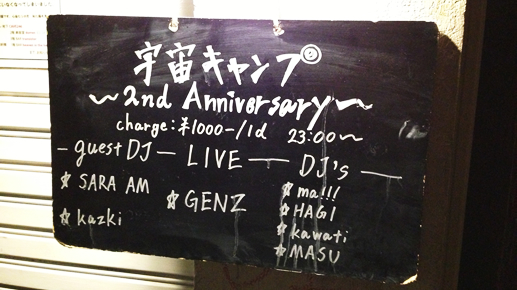 宇宙キャンプ
〜2nd Anniversary〜
charge:¥1000-/1d 23:00〜
-guest DJ- LIVE — DJ's —
☆ SARA AM
☆ kazki
☆ GENZ
☆ ma!!!
☆ HAGI
☆ kawati
☆ MASU